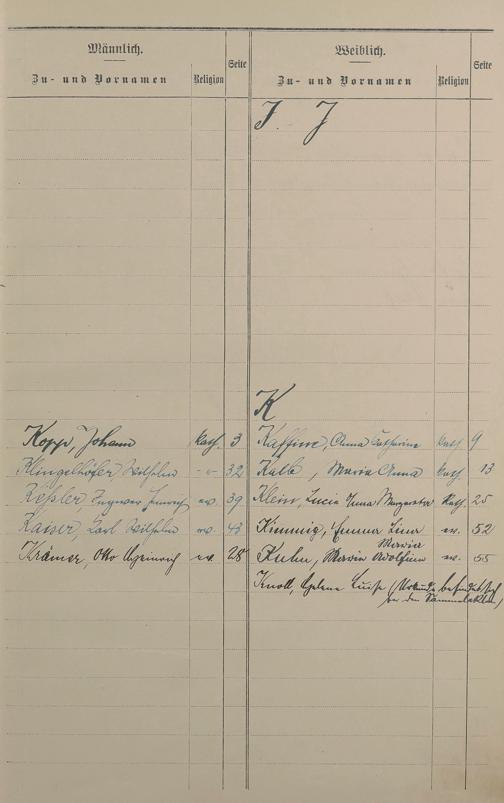 Männlich.
Zu- und Vornamen
Religion
Seite
Weiblich.
Zu- und Vornamen
Religion
Seite
I - J
K
Kopp, Johann kath. 3
Klingelhöfer Wilhelm -"- 32
Keßler, Heinrich ev. 39
Kaiser, Karl Wilhelm ev. 43
Krämer, Otto Heinrich ev. 28
Kaffine, Anna Catharina kath. 9
Kalb, Maria Anna kath. 13
Klein, Lucia Anna Margareta Kath. 25
Kimmig, Emma Lina Maria ev. 52
Kuhn, Maria ev. 55
Knoll, Helene Luise (Urkunde befindet sich
bei den Sammelakten)